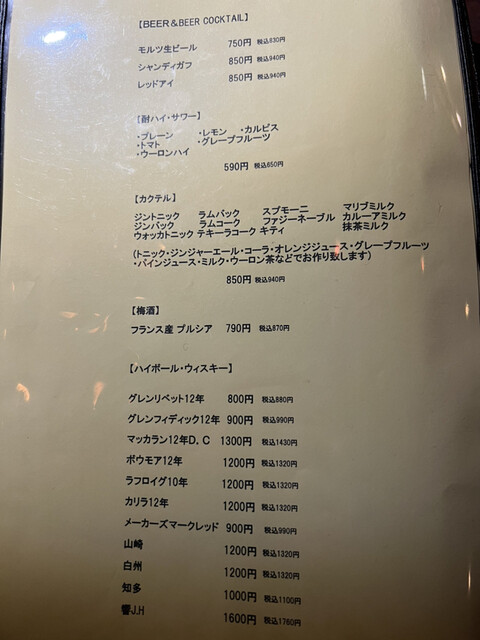 【BEER＆BEER COCKTAIL】
モルツ生ビール 750円 税込830円
シャンディガフ 850円 税込940円
レッドアイ 850円 税込940円
【酎ハイ・サワー】
・プレーン ・レモン ・カルピス
・トマト ・グレープフルーツ
・ウーロンハイ
590円 税込650円
【カクテル】
ジントニック ラムバック スプモーニ マリブミルク
ジンバック ラムコーク ファジーネーブル カルーアミルク
ウォッカトニック テキーラコーク キティ 抹茶ミルク
(トニック・ジンジャーエール・コーラ・オレンジジュース・グレープフルーツ
・パインジュース・ミルク・ウーロン茶などでお作り致します)
850円 税込940円
【梅酒】
フランス産 プルシア 790円 税込870円
【ハイボール・ウィスキー】
グレンリベット12年 800円 税込880円
グレンフィディック12年 900円 税込990円
マッカラン12年D．C 1300円 税込1430円
ボウモア12年 1200円 税込1320円
ラフロイグ10年 1200円 税込1320円
カリラ12年 1200円 税込1320円
メーカーズマークレッド 900円 税込990円
山崎 1200円 税込1320円
白州 1200円 税込1320円
知多 1000円 税込1100円
響J.H 1600円 税込1760円